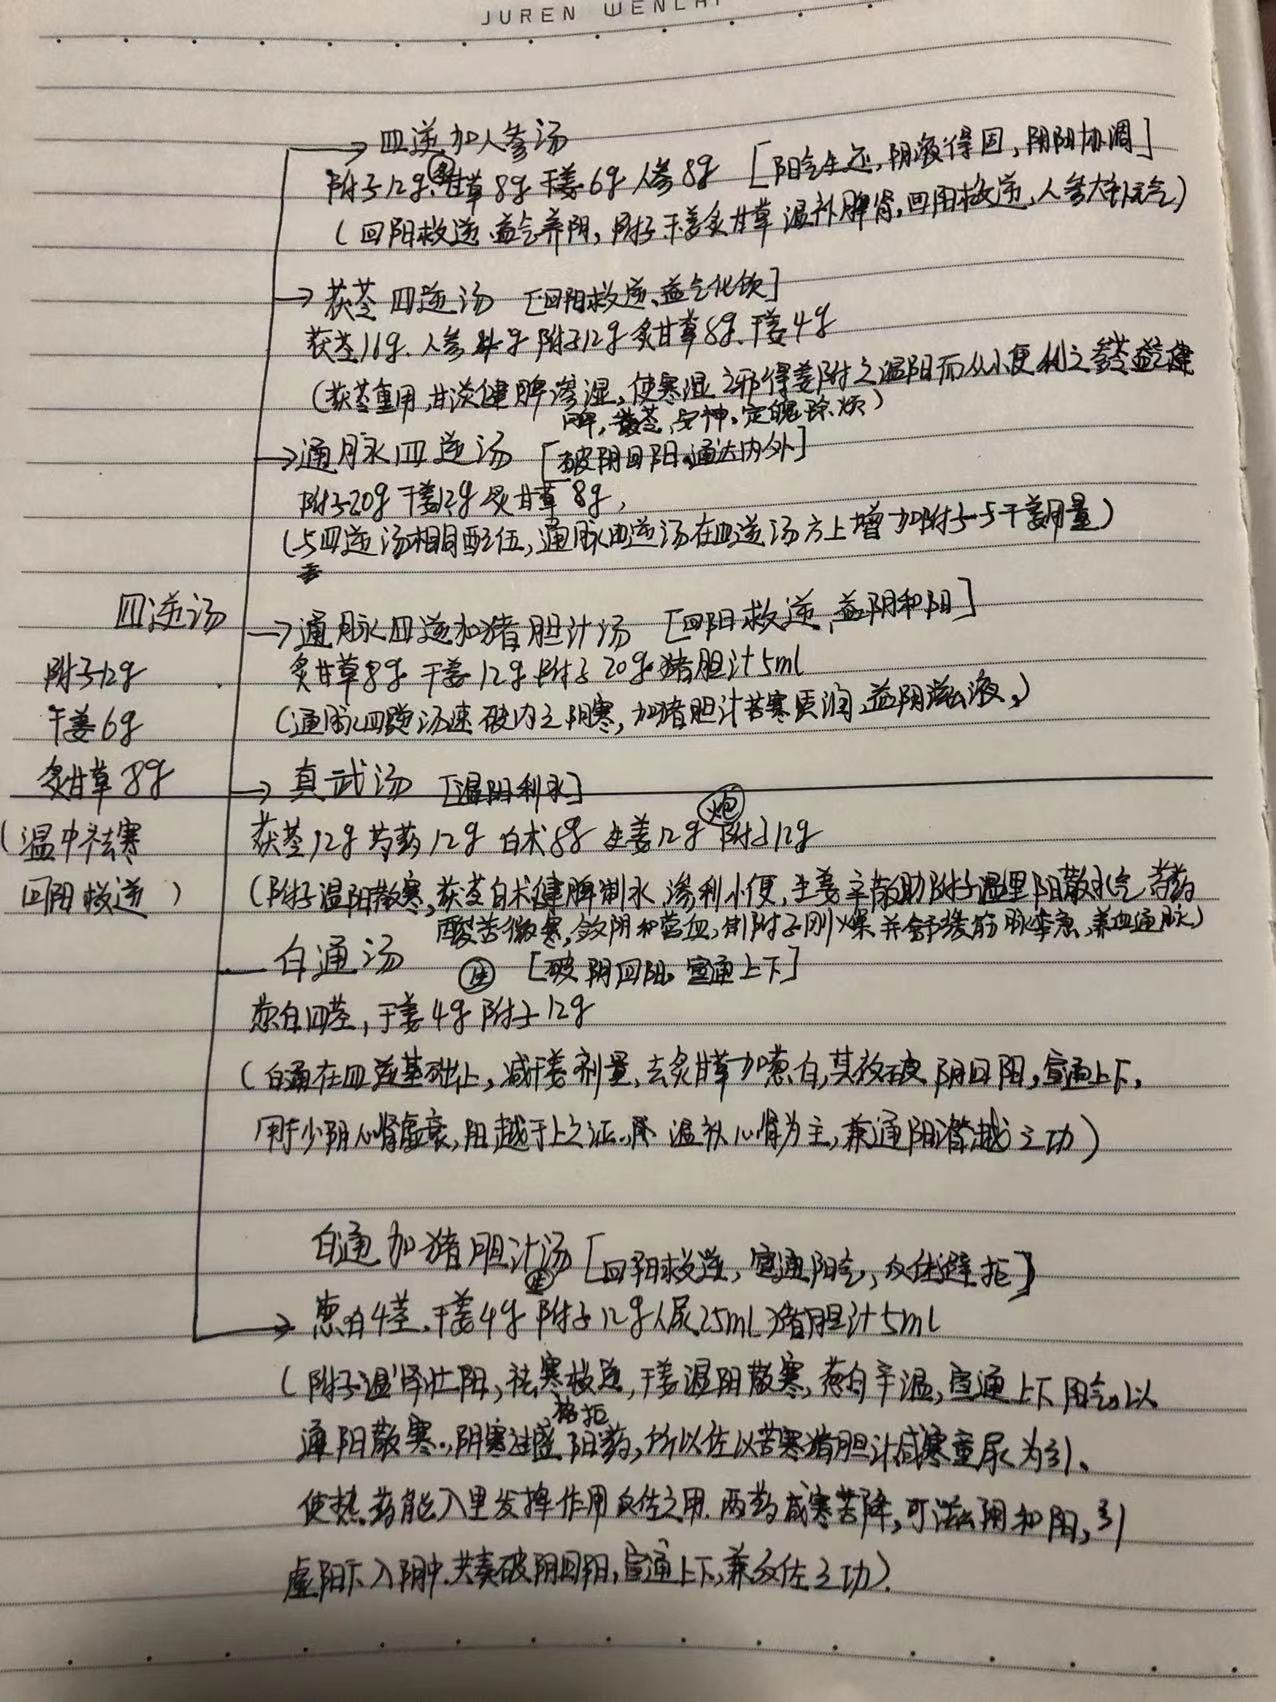 JUREN WENCHI
四逆加人参汤
附子12g 甘草8g 干姜6g 人参8g [阳气生还,阴液得固,阴阳协调]
(回阳救逆 益气养阴, 附子干姜炙甘草 温补脾肾,回阳救逆,人参大补元气)
茯苓四逆汤 [回阳救逆、益气化饮]
茯苓16g.人参 g 附子12g 炙甘草8g.干姜4g
(茯苓重用,甘淡健脾渗湿,使寒湿之邪得姜附之温阳而从小便利之 参苓益气健
脾, 茯苓.安神.定魄除烦)
通脉四逆汤 [破阴回阳.通达内外]
附子20g 干姜12g 炙甘草8g,
(与四逆汤相同配伍,通脉四逆汤在四逆汤方上增加附子与干姜用量)
四逆汤
通脉四逆加猪胆汁汤 [回阳救逆,益阴和阳]
附子12g
炙甘草8g 干姜12g 附子20g 猪胆汁5ml
干姜6g
(通脉四逆汤速破内之阴寒,加猪胆汁苦寒质润 益阴滋液。)
炙甘草8g
真武汤 [温阳利水]
(温中祛寒
茯苓12g 芍药12g 白术8g 生姜12g 炮附子12g
回阳救逆)
(附子温阳散寒,茯苓白术健脾制水 渗利小便,生姜辛散助附子温里阳散水气 芍药
酸苦微寒,敛阴和营血,制附子刚燥并舒缓筋脉挛急,养血通脉)
白通汤 生 [破阴回阳,宣通上下]
葱白四茎,干姜4g 附子12g
(白通在四逆基础上,减干姜剂量,去炙甘草加葱白,其效破阴回阳,宣通上下,
用于少阴心肾虚衰,阳越于上之证. 温补心肾为主,兼通阳潜越之功)
白通加猪胆汁汤 [回阳救逆,宣通阳气,反佐避拒]
葱白4茎.干姜4g 生附子12g 人尿25mL 猪胆汁5mL
(附子温肾壮阳,祛寒救逆,干姜温阳散寒,葱白辛温,宣通上下阳气,以
通阳散寒.,阴寒过盛格拒阳药,所以佐以苦寒猪胆汁咸寒童尿为引、
使热药能入里发挥作用反佐之用.两药咸寒苦降,可滋阴和阳,引
虚阳下入阴中.共奏破阴回阳,宣通上下,兼反佐之功).